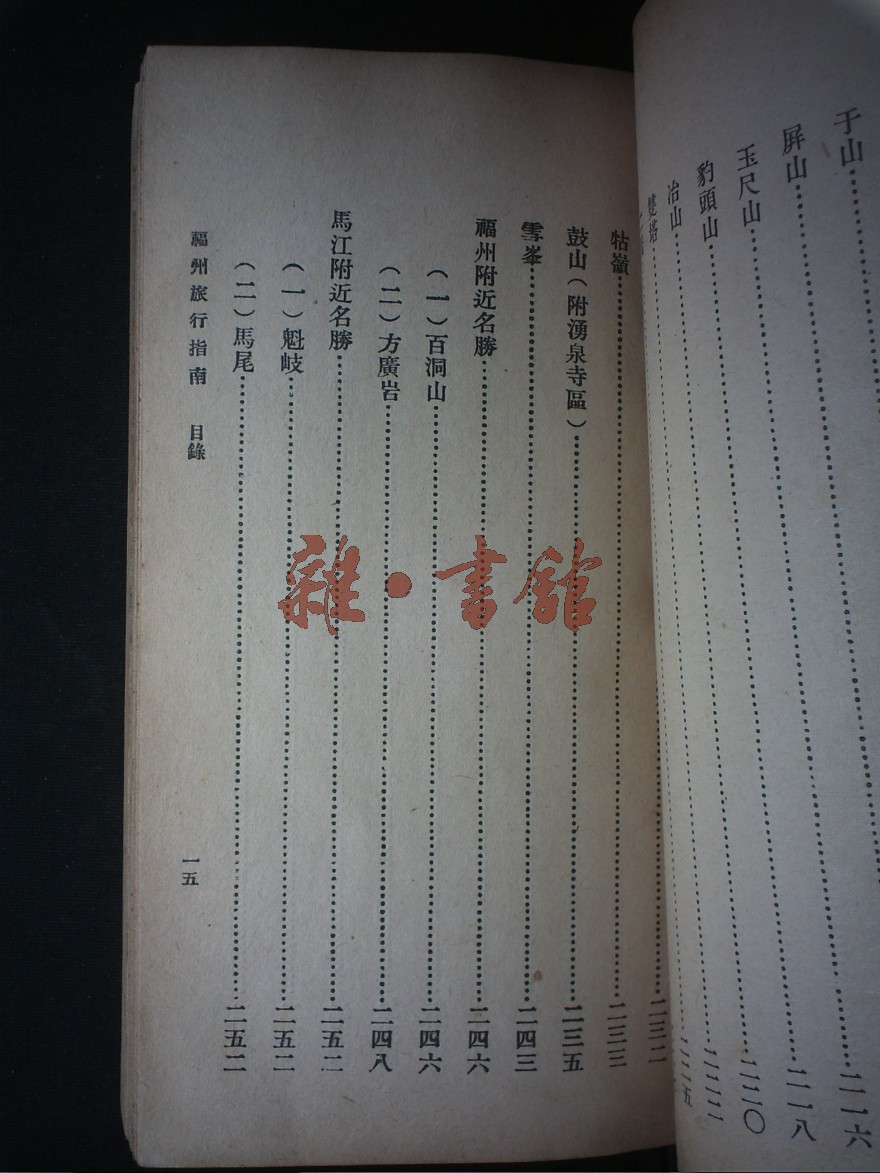 于山⋯⋯二一六
屏山⋯⋯二一八
玉尺山⋯⋯二二〇
豹頭山⋯⋯二二二
冶山⋯⋯二二五
雙塔⋯⋯
⋯⋯二三二
牯嶺⋯⋯二三三
鼓山(附湧泉寺區)⋯⋯二三五
雪峯⋯⋯二四三
福州附近名勝⋯⋯二四六
(一)百洞山⋯⋯二四六
(二)方廣岩⋯⋯二四八
馬江附近名勝⋯⋯二五二
(一)魁岐⋯⋯二五二
(二)馬尾⋯⋯二五二
福州旅行指南 目錄
一五
雜·書館